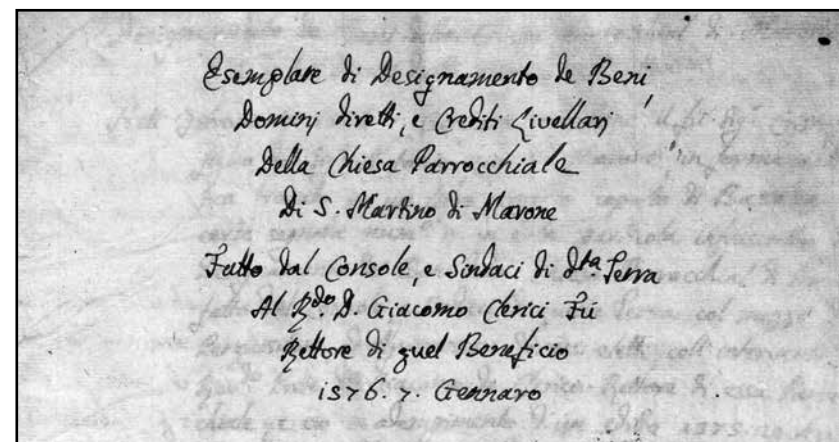 Esemplare di Designamento de Beni,
Dominj diretti, e Crediti Livellarj
Della Chiesa Parrocchiale
Di S. Martino di Marone
Fatto dal Console, e Sindaci di d.ta Terra
Al R.do D. Giacomo Clerici Fú
Rettore di quel Beneficio
1576. 7. Gennaro